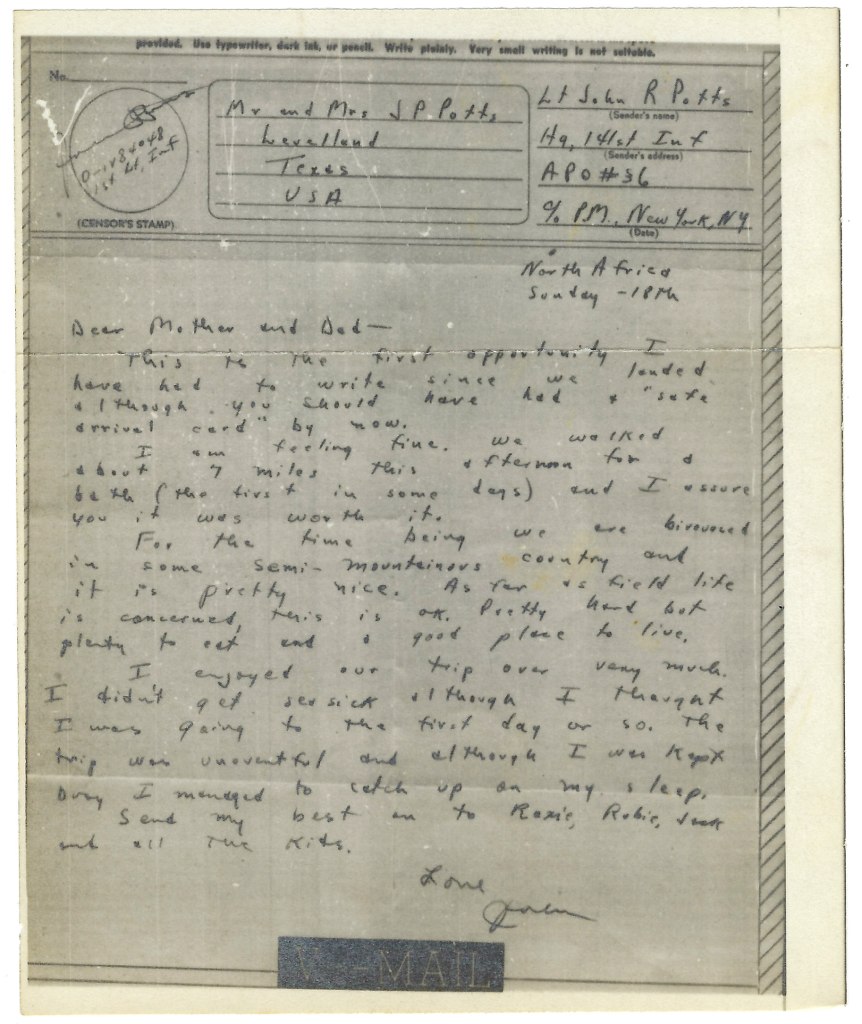 provided. Use typewriter, dark ink, or pencil. Write plainly. Very small writing is not suitable.
No.
Mr and Mrs J P Potts
Levelland
Texas
USA
Lt John R Potts
(Sender's name)
Hq, 141st Inf
(Sender's address)
APO #36
c/o P.M., New York, NY
(Date)
1st Lt, Inf
(CENSOR'S STAMP)
North Africa
Sunday - 18th
Dear Mother and Dad—
This is the first opportunity I
have had to write since we landed
although you should have had a "safe
arrival card" by now.
I am feeling fine. We walked
about 7 miles this afternoon for a
bath (the first in some days) and I assure
you it was worth it.
For the time being we are bivouaced
in some semi-mountainous country and
it is pretty nice. As far as field life
is concerned, this is ok. Pretty hard but
plenty to eat and a good place to live.
I enjoyed our trip over very much.
I didn't get seasick although I thought
I was going to the first day or so. The
trip was uneventful and although I was kept
busy I managed to catch up on my sleep.
Send my best on to Roxie, Robie, Jack
and all the kids.
Love
John
V···—MAIL